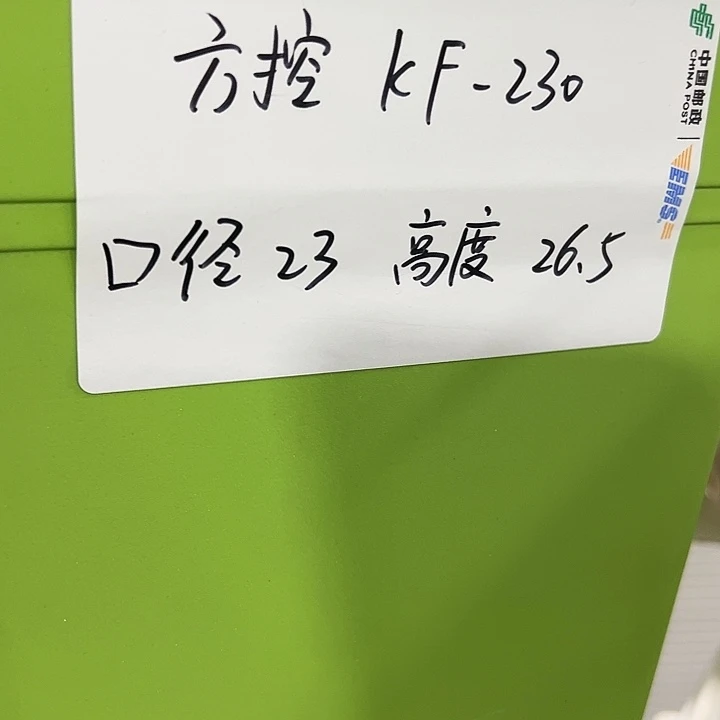 方控 KF-230
口径 23 高度 26.5
中国邮政
CHINA POST
EMS